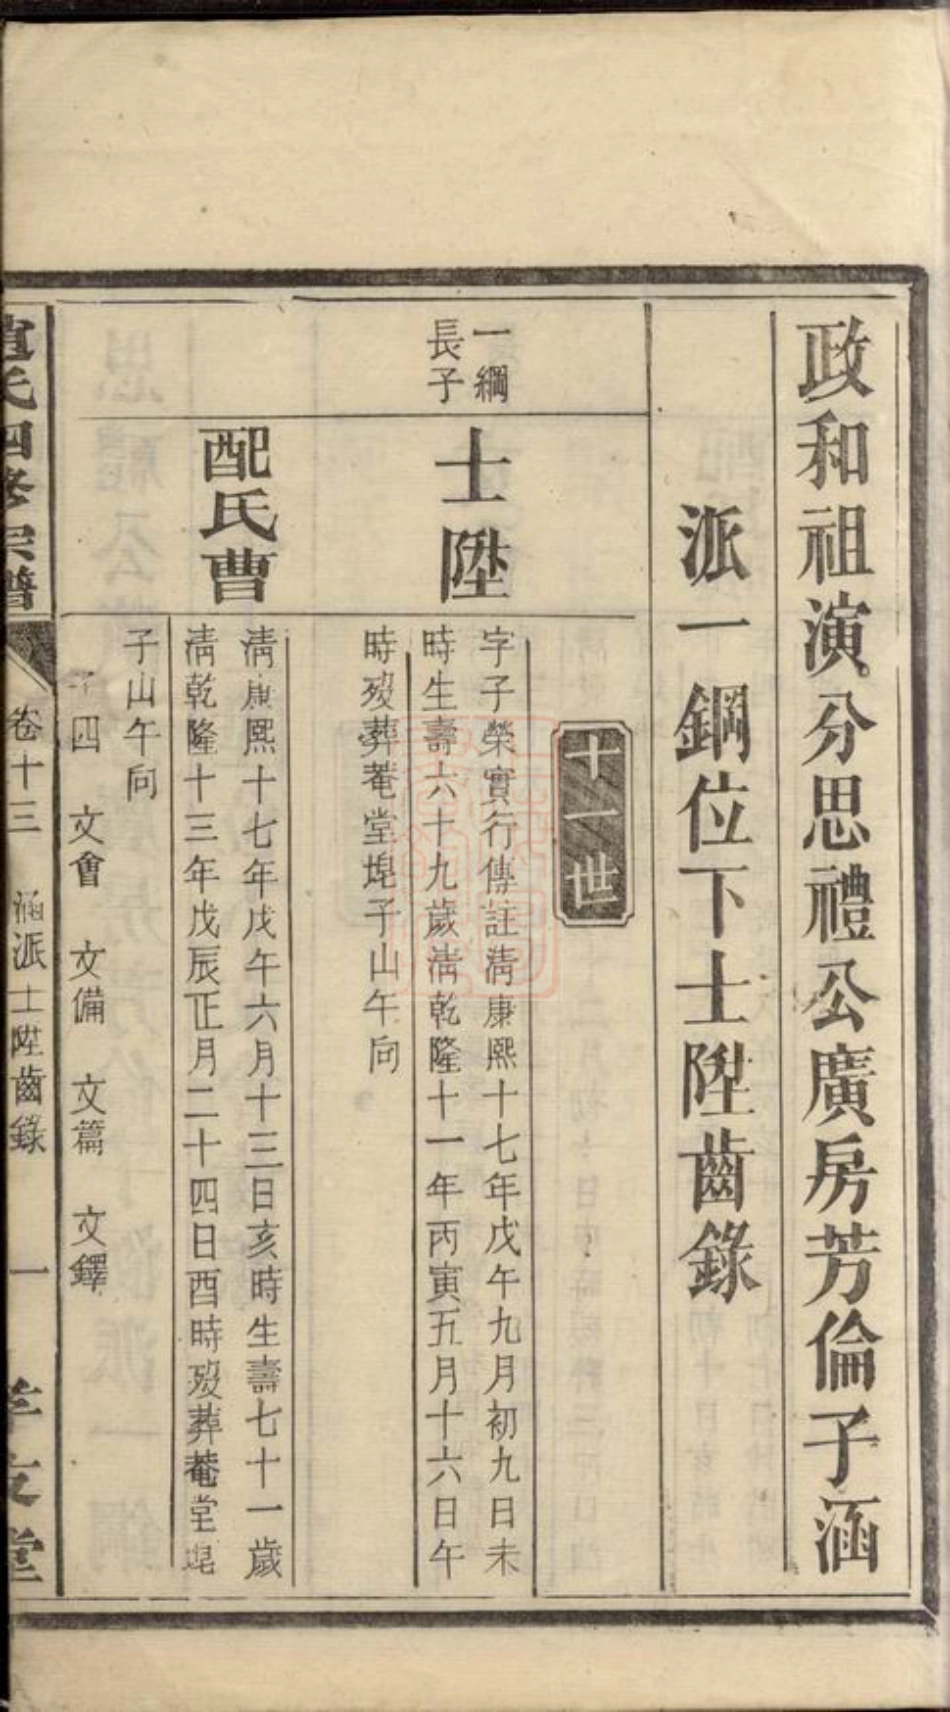 政和祖演分思禮公廣房芳倫子涵
派一鋼位下士陞齒錄
十一世
一綱
長子
士陞
字子榮實行傳註清康熙十七年戊午九月初九日未
時生壽六十九歲清乾隆十一年丙寅五月十六日午
時歿葬菴堂垠子山午向
配氏曹
清康熙十七年戊午六月十三日亥時生壽七十一歲
清乾隆十三年戊辰正月二十四日酉時歿葬菴堂垠
子山午向
子四 文會 文備 文篇 文鐸
氏四修宗譜 卷十三 涵派士陞齒錄 一 堂